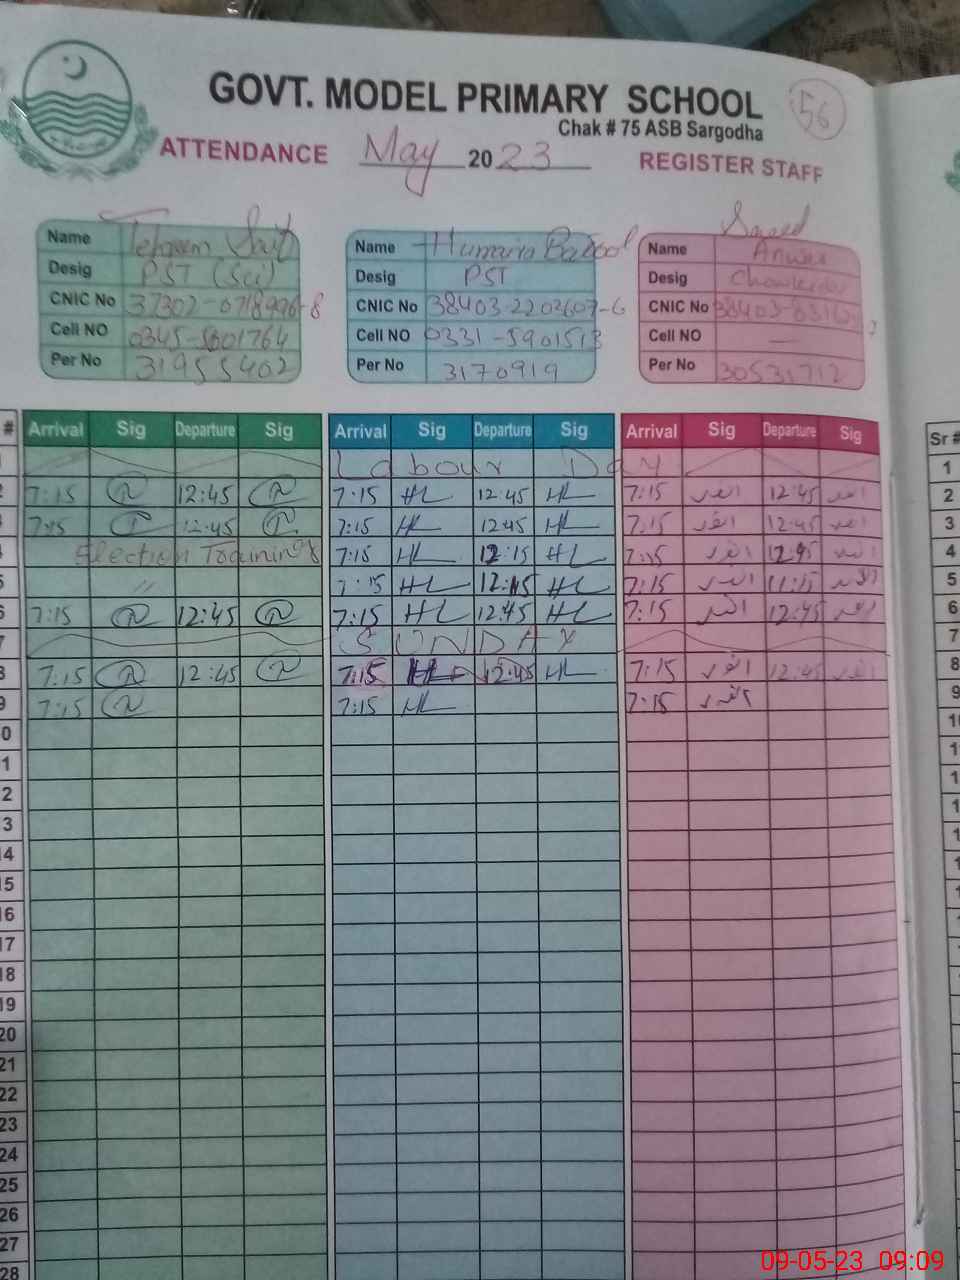 GOVT. MODEL PRIMARY SCHOOL
56
Chak # 75 ASB Sargodha
ATTENDANCE May 2023 REGISTER STAFF
Name Name Humaira Batool Name Saeed Anwar
Desig PST (Sci) Desig PST Desig Chowkidar
CNIC No 37302-0718996-8 CNIC No 38403-2202607-6 CNIC No
Cell NO 0345-5601764 Cell NO 0331-5901513 Cell NO —
Per No 31955402 Per No 3170919 Per No 30531712
# Arrival Sig Departure Sig Arrival Sig Departure Sig Arrival Sig Departure Sig Sr #
Labour Day 1
2 7:15 12:45 7:15 HL 12:45 HL 7:15 12:45 2
3 7:15 12:45 7:15 HL 12:45 HL 7:15 12:45 3
4 Election Training 7:15 HL 12:15 HL 7:15 12:45 4
5 〃 7:15 HL 12:15 HL 7:15 11:15 5
6 7:15 12:45 7:15 HL 12:45 HL 7:15 12:45 6
7 SUNDAY 7
8 7:15 12:45 7:15 HL 12:45 HL 7:15 12:45 8
9 7:15 7:15 HL 7:15 9
0 10
1
2
3
14
15
16
17
18
19
20
21
22
23
24
25
26
27
28
09-05-23 09:09